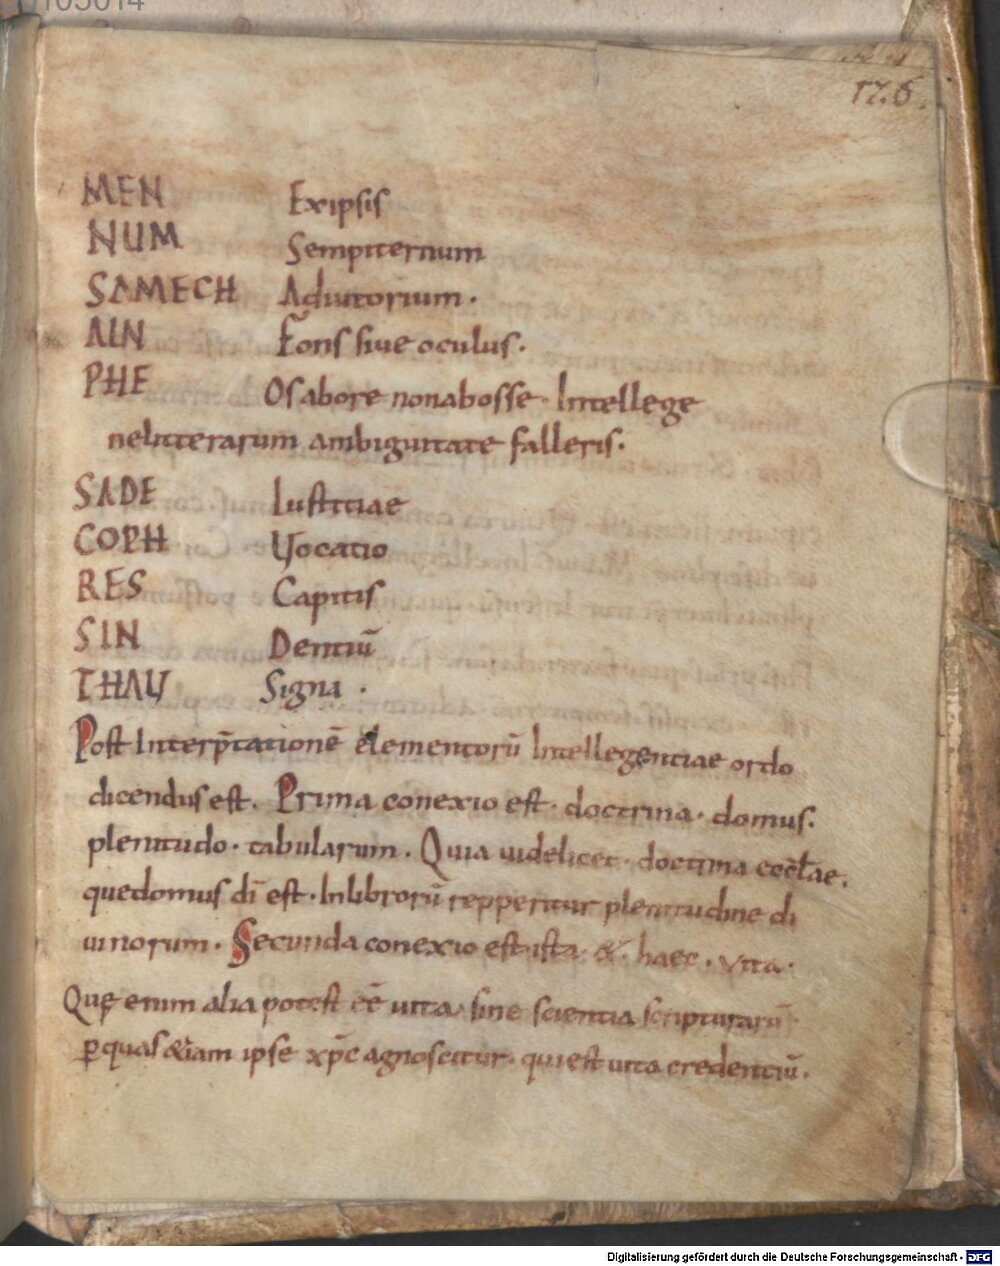 176.
MEN Exipsis
NUM Sempiternum
SAMECH Adiutorium.
AIN Fons siue oculus.
PHE Osabore nonabosse. Intellege
neliterarum ambiguitate falleris.
SADE Iustitiae
COPH Uocatio
RES Capitis
SIN Dentiū
THAU Signa .
Post Interp̄tationē elementorū Intellegentiae ordo
dicendus est. Prima conexio est. doctrina. domus.
plenitudo. tabularum. Quia uidelicet. doctrina eccłae.
quedomus dī est. Inlibrorū repperitur plenitudine di
uinorum. Secunda conexio est. ista & haec. vita.
Quę enim alia potest eē uita. sine scientia scripturarū
ꝑquas &iam ipse xp̄c agnoscitur. quiest uita credentiū.
Digitalisierung gefördert durch die Deutsche Forschungsgemeinschaft - DFG